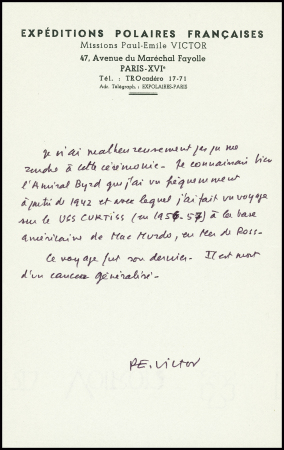 EXPÉDITIONS POLAIRES FRANÇAISES
Missions Paul-Emile VICTOR
47, Avenue du Maréchal Fayolle
PARIS-XVIe
Tél. : TROcadéro 17-71
Adr. Télégraph. : EXPOLAIRES-PARIS
Je n'ai malheureusement pas pu me
rendre à cette cérémonie. Je connaissais bien
l'Amiral Byrd que j'ai vu fréquemment
à partir de 1942 et avec lequel j'ai fait un voyage
sur le USS CURTISS (en 1956-57) à la base
américaine de Mac Murdo, en Mer de Ross.
Ce voyage fut son dernier. Il est mort
d'un cancer généralisé.
P.E. VICTOR